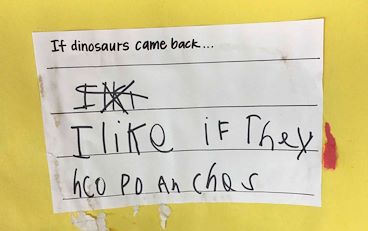 If dinosaurs came back...
I like if They
hco po an ches